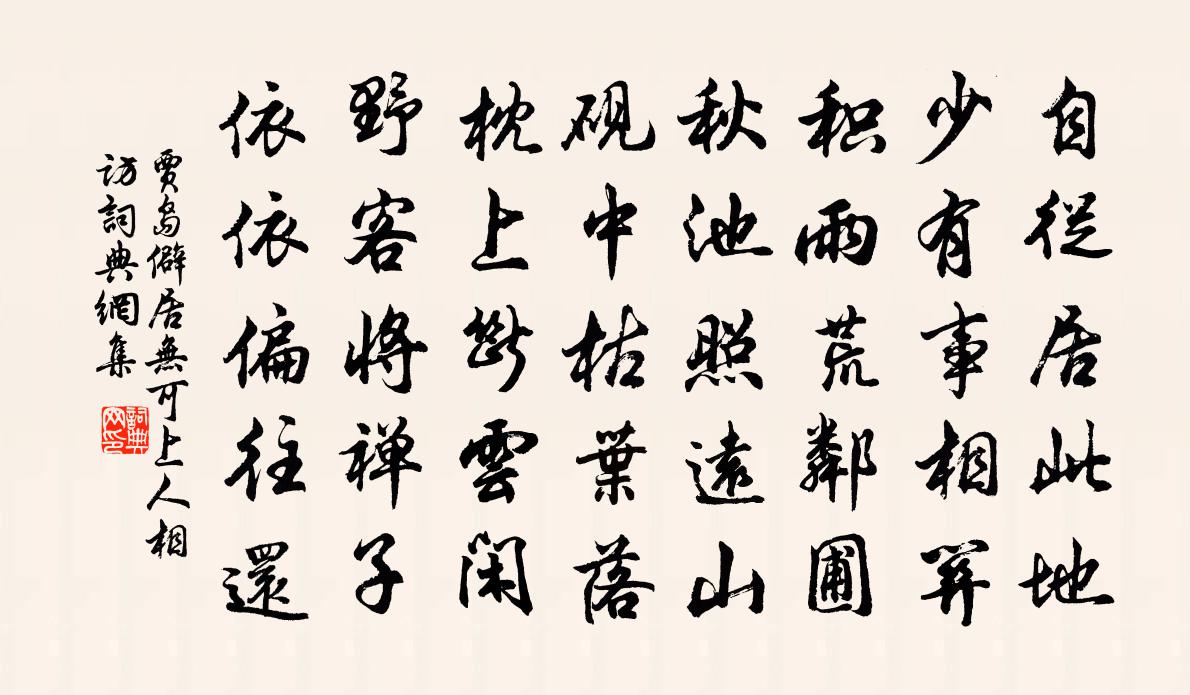 自從居此地
少有事相關
积雨荒鄰圃
秋池照遠山
硯中枯葉落
枕上斷雲閑
野客將禅子
依依偏往還
賈島僻居無可上人相
访詞典網集
詞典网印